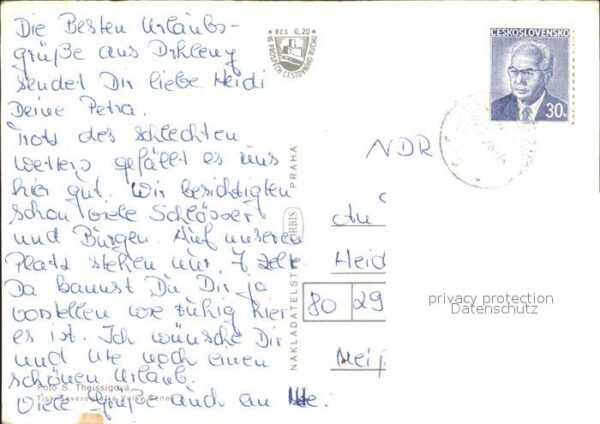 Die Besten Urlaubs-
grüße aus Drhleny
sendet Dir liebe Heidi
Deine Petra.
Trotz des schlechten
Wetters gefällt es uns
hier gut. Wir besichtigten
schon viele Schlösser
und Burgen. Auf unserem
Platz stehen nur 7 Zelte.
Da kannst Du Dir ja
vorstellen wie ruhig hier
es ist. Ich wünsche Dir
und Ute noch einen
schönen Urlaub.
Viele Grüße auch an Ute.
Foto S. Theissigová
Kčs 0,20
VE PROSPĚCH CESTOVNÍHO RUCHU
NAKLADATELST ORBIS PRAHA
ČESKOSLOVENSKO
30h
NDR
An
Heid
80 29
privacy protection
Datenschutz